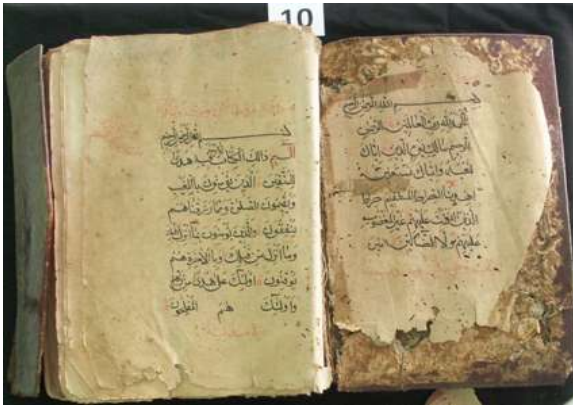 10
بسم الله الرحمن الرحيم
الحمد لله رب العالمين الرحمن
الرحيم مالك يوم الدين اياك
نعبد واياك نستعين
اهدنا الصراط المستقيم صراط
الذين انعمت عليهم غير المغضوب
عليهم ولا الضالين امين
بسم الله الرحمن الرحيم
الم ذالك الكتاب لا ريب فيه هدى
للمتقين الذين يؤمنون بالغيب
ويقيمون الصلوة ومما رزقناهم
ينفقون والذين يؤمنون بما انزل اليك
وما انزل من قبلك وبالاخرة هم
يوقنون اولئك على هدى من ربهم
واولئك هم المفلحون